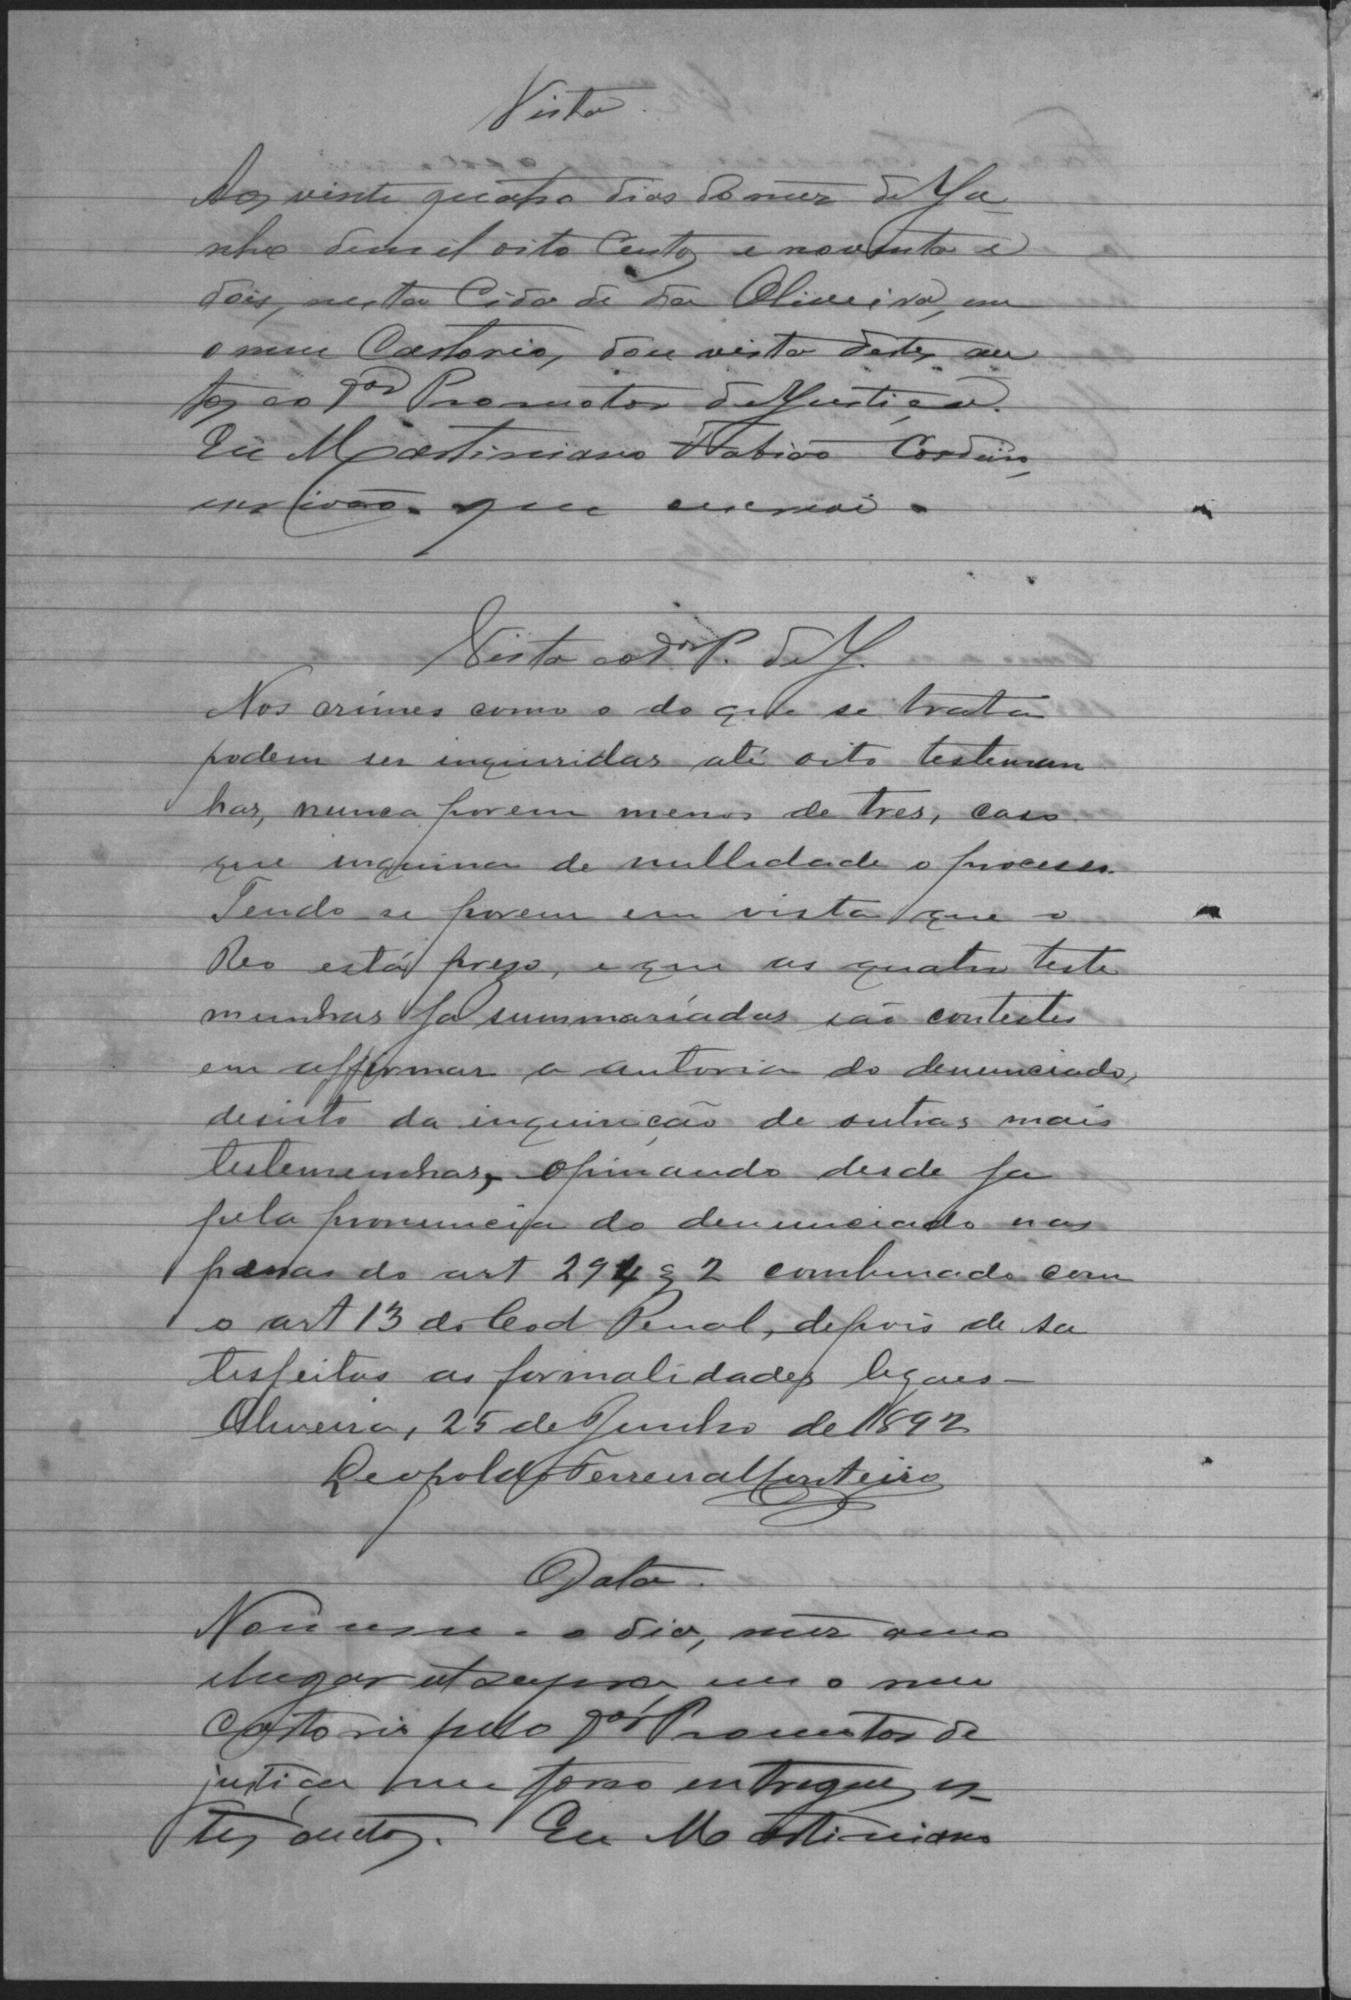 Vista.
Aos vinte quatro dias do mez de Ju-
nho de mil oito Centos e noventa e
dois, nesta Cidade da Oliveira, em
o meu Cartorio, dou vista destes au
tos ao Dor Promotor de Justiça.
Eu Martiniano Cordeiro,
escrivão que escrevi.
Vista ao Dor P. de J.
Nos crimes como o do que se trata
podem ser inquiridas até oito testemun
has, nunca porem menos de tres, caso
que inquina de nullidade o processo.
Tendo se porem em vista que o
Reo está prezo, e que as quatro teste
munhas ja summariadas são contestes
em affirmar a autoria do denunciado,
desisto da inquirição de outras mais
testemunhas, opinando desde ja
pela pronuncia do denunciado nas
penas do art 294 § 2 combinado com
o art 13 do Cod Penal, depois de sa
tisfeitas as formalidades legaes —
Oliveira, 25 de Junho de 1892
Leopoldo Ferreira Monteiro
Data.
No mesmo dia, mez anno
e lugar ut supra em o meu
Cartorio pelo Dor Promotor de
justiça me forão entregues es-
tes autos. Eu Martiniano